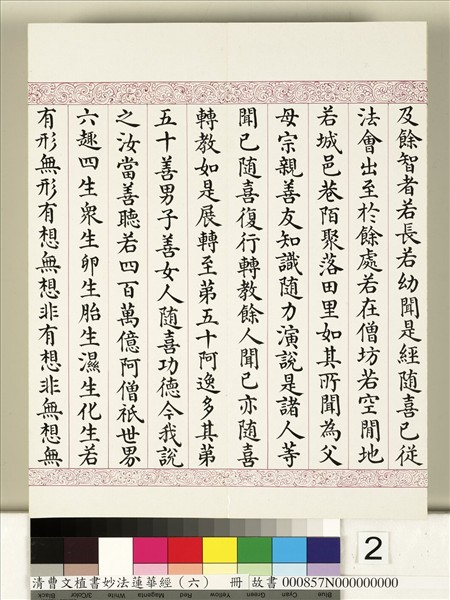 及餘智者若長若幼聞是經隨喜已從
法會出至於餘處若在僧坊若空閒地
若城邑巷陌聚落田里如其所聞為父
母宗親善友知識随力演說是諸人等
聞已随喜復行轉教餘人聞已亦随喜
轉教如是展轉至第五十阿逸多其第
五十善男子善女人随喜功德今我說
之汝當善聽若四百萬億阿僧祇世界
六趣四生衆生卵生胎生濕生化生若
有形無形有想無想非有想非無想無
2
清曹文植書妙法蓮華經(六) 冊 故書 000857N000000000
Black 3/Color White Magenta Red Yellow Green Cyan Blue